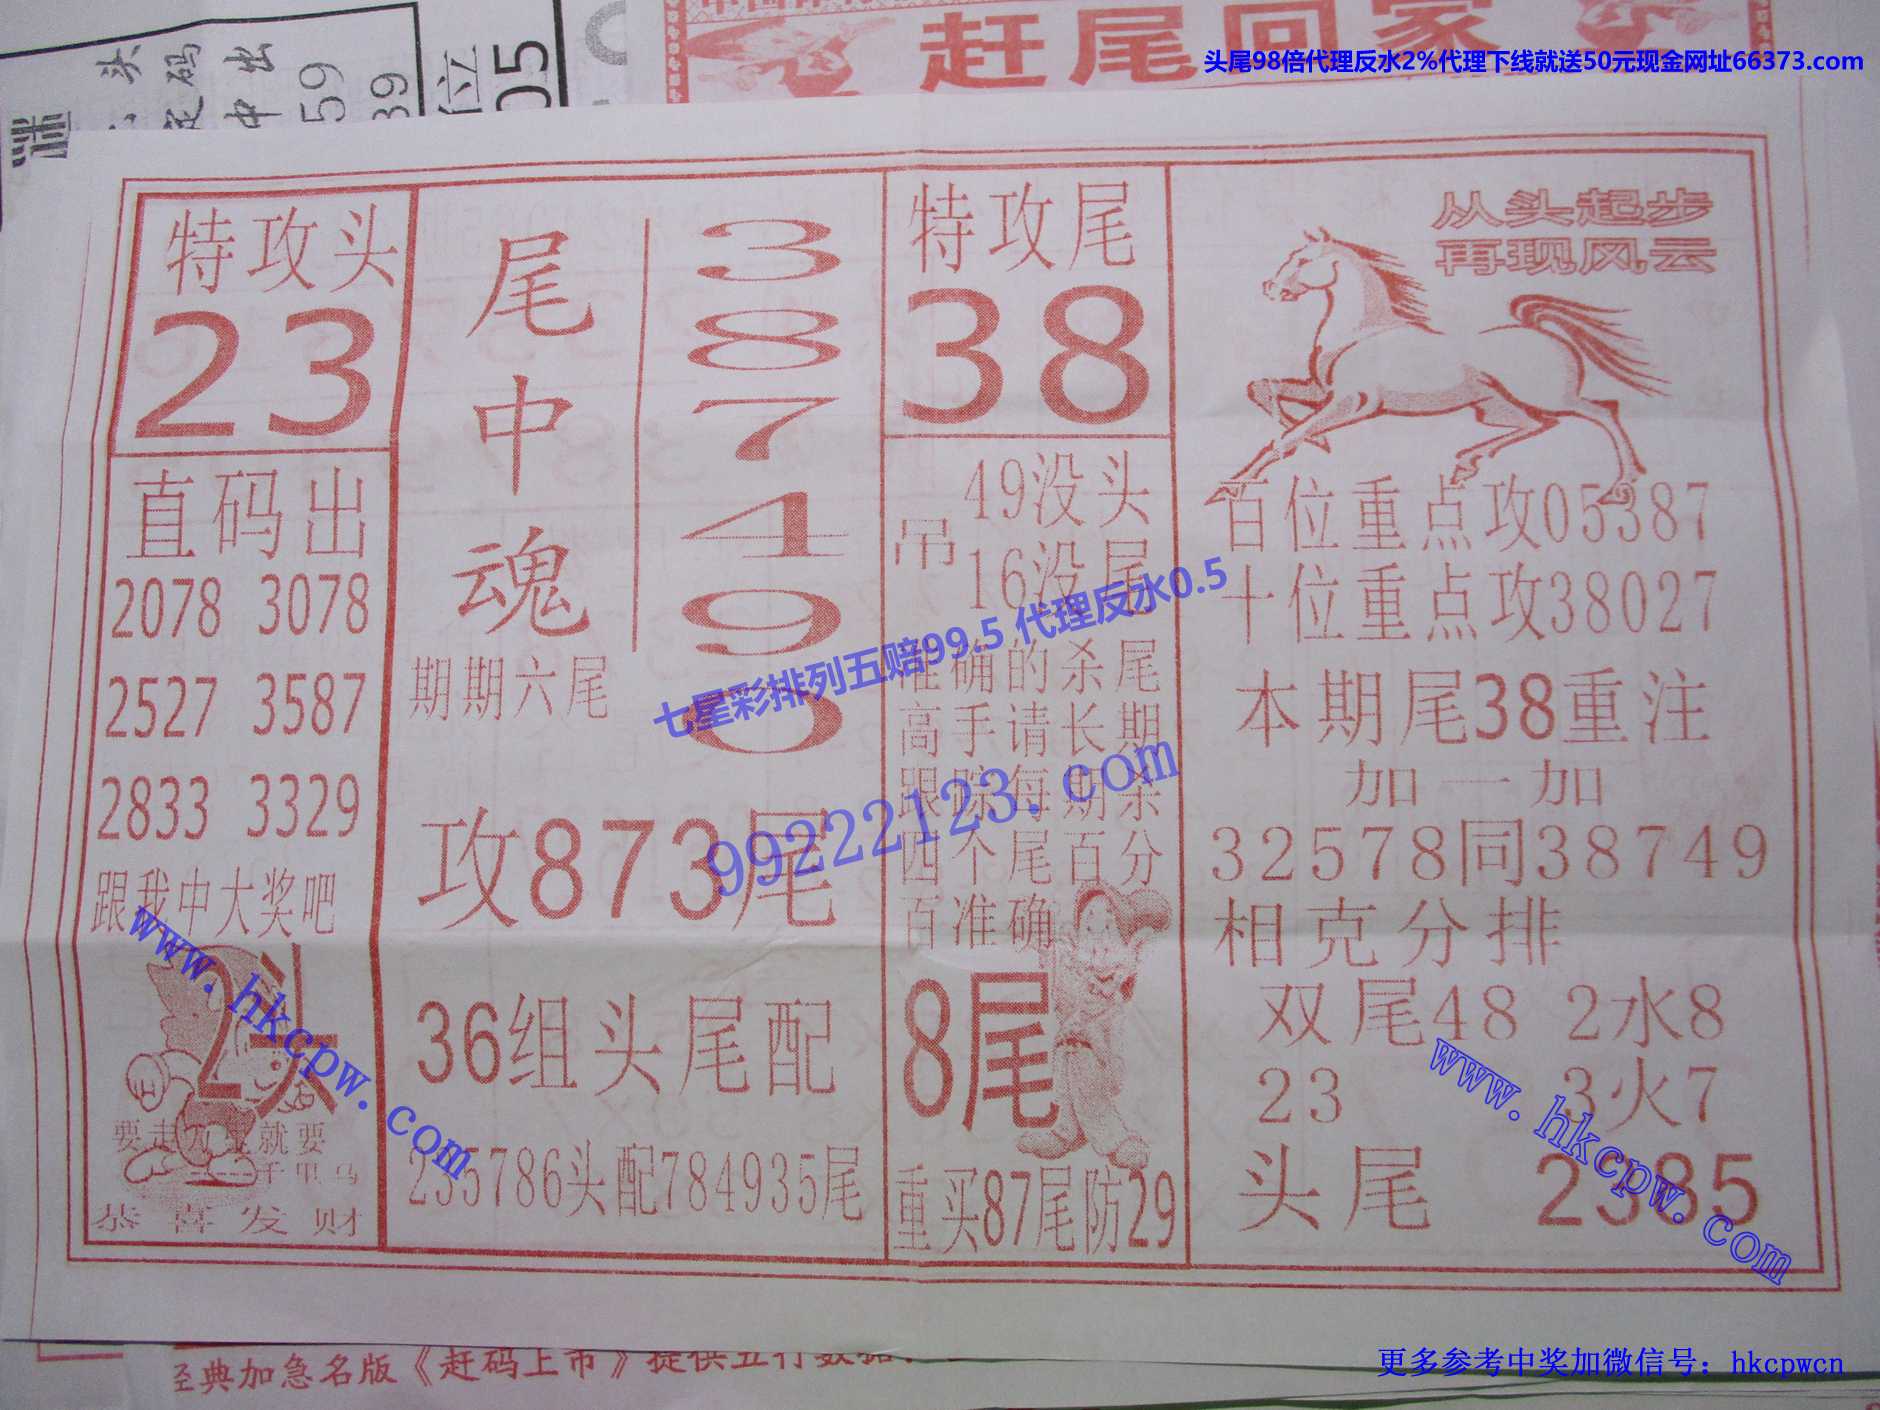 赶尾回家
头尾98倍代理反水2%代理下线就送50元现金网址66373.com
头 码 出
中 59 39
位 05
谜
特攻头
23
直码出
2078 3078
2527 3587
2833 3329
跟我中大奖吧
2头
要走 就要
千里马
恭喜发财
尾中魂
387490
期期六尾
攻873尾
36组头尾配
235786头配784935尾
特攻尾
38
吊
49没头
16没尾
准确的杀尾
高手请长期
跟踪每期杀
四个尾百分
百准确
8尾
重买87尾防29
从头起步
再现风云
百位重点攻05387
十位重点攻38027
本期尾38重注
加一加
32578同38749
相克分排
双尾48 2水8
23 3火7
头尾 2385
七星彩排列五赔99.5 代理反水0.5
99222123.com
www.hkcpw.com
www.hkcpw.com
经典加急名版《赶码上市》提供五行数据
更多参考中奖加微信号：hkcpwcn